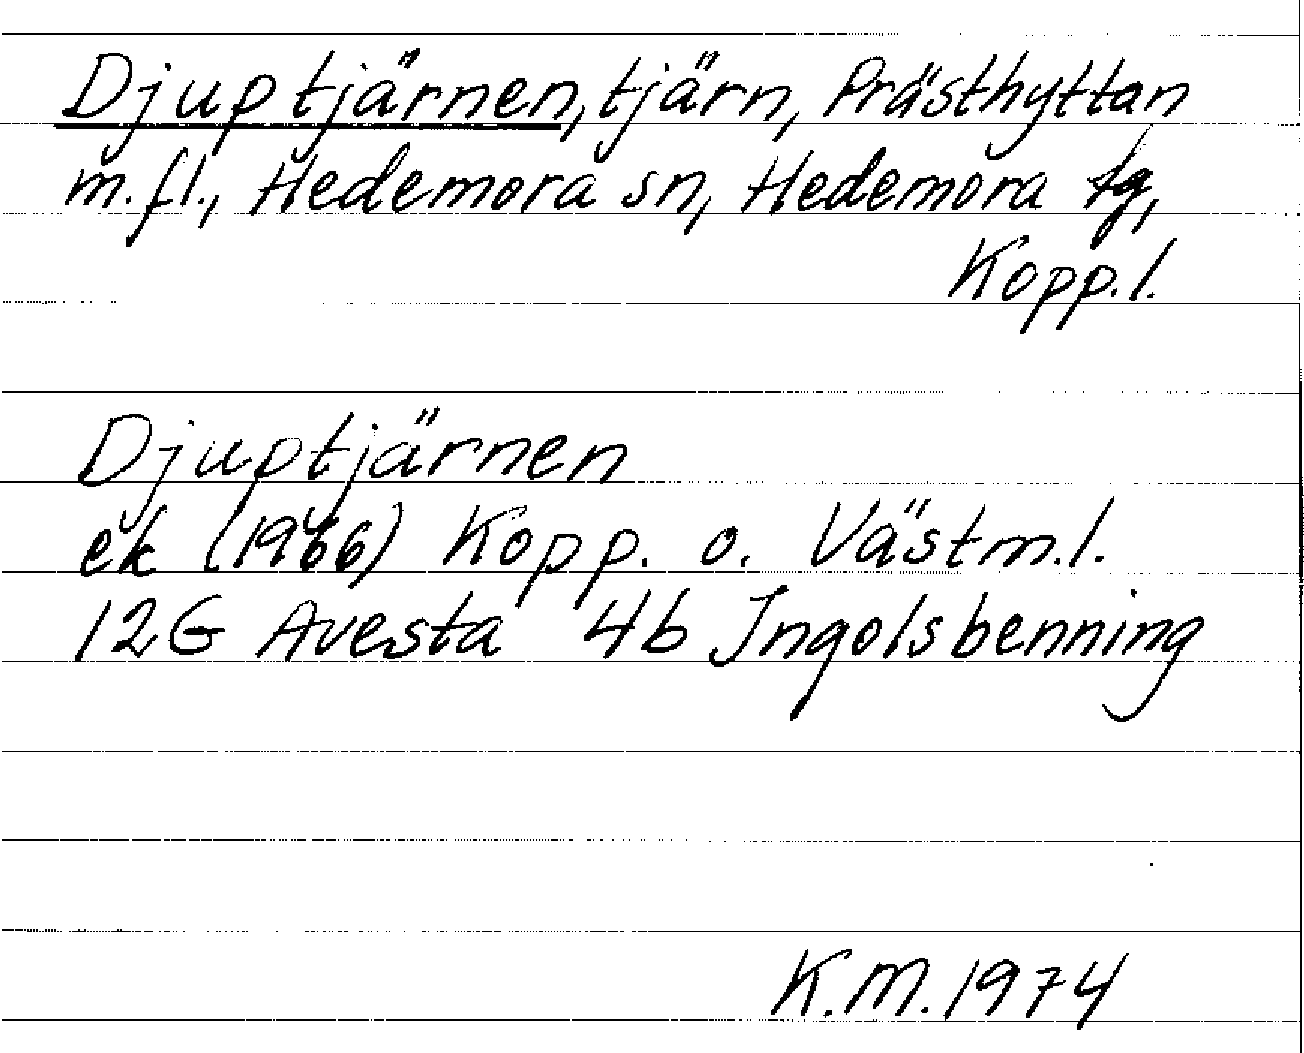 Djuptjärnen, tjärn, Prästhyttan
m.fl., Hedemora sn, Hedemora tg,
Kopp.l.
Djuptjärnen
ek (1966) Kopp. o. Västm.l.
12G Avesta 4b Ingolsbenning
K.M. 1974